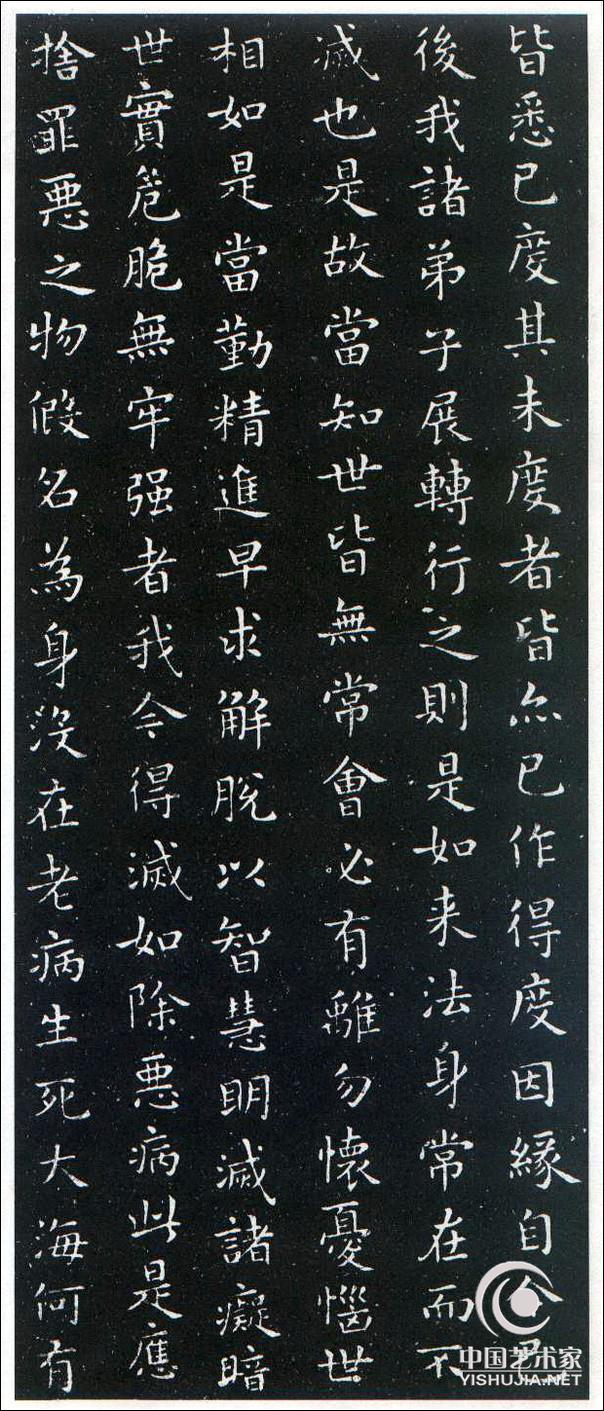 皆悉已度其未度者皆亦已作得度因緣自今已
後我諸弟子展轉行之則是如来法身常在而不
滅也是故當知世皆無常會必有離勿懷憂惱世
相如是當勤精進早求解脫以智慧明滅諸癡暗
世實危脆無牢强者我今得滅如除惡病此是應
捨罪惡之物假名為身沒在老病生死大海何有
中国艺术家
YISHUJIA.NET